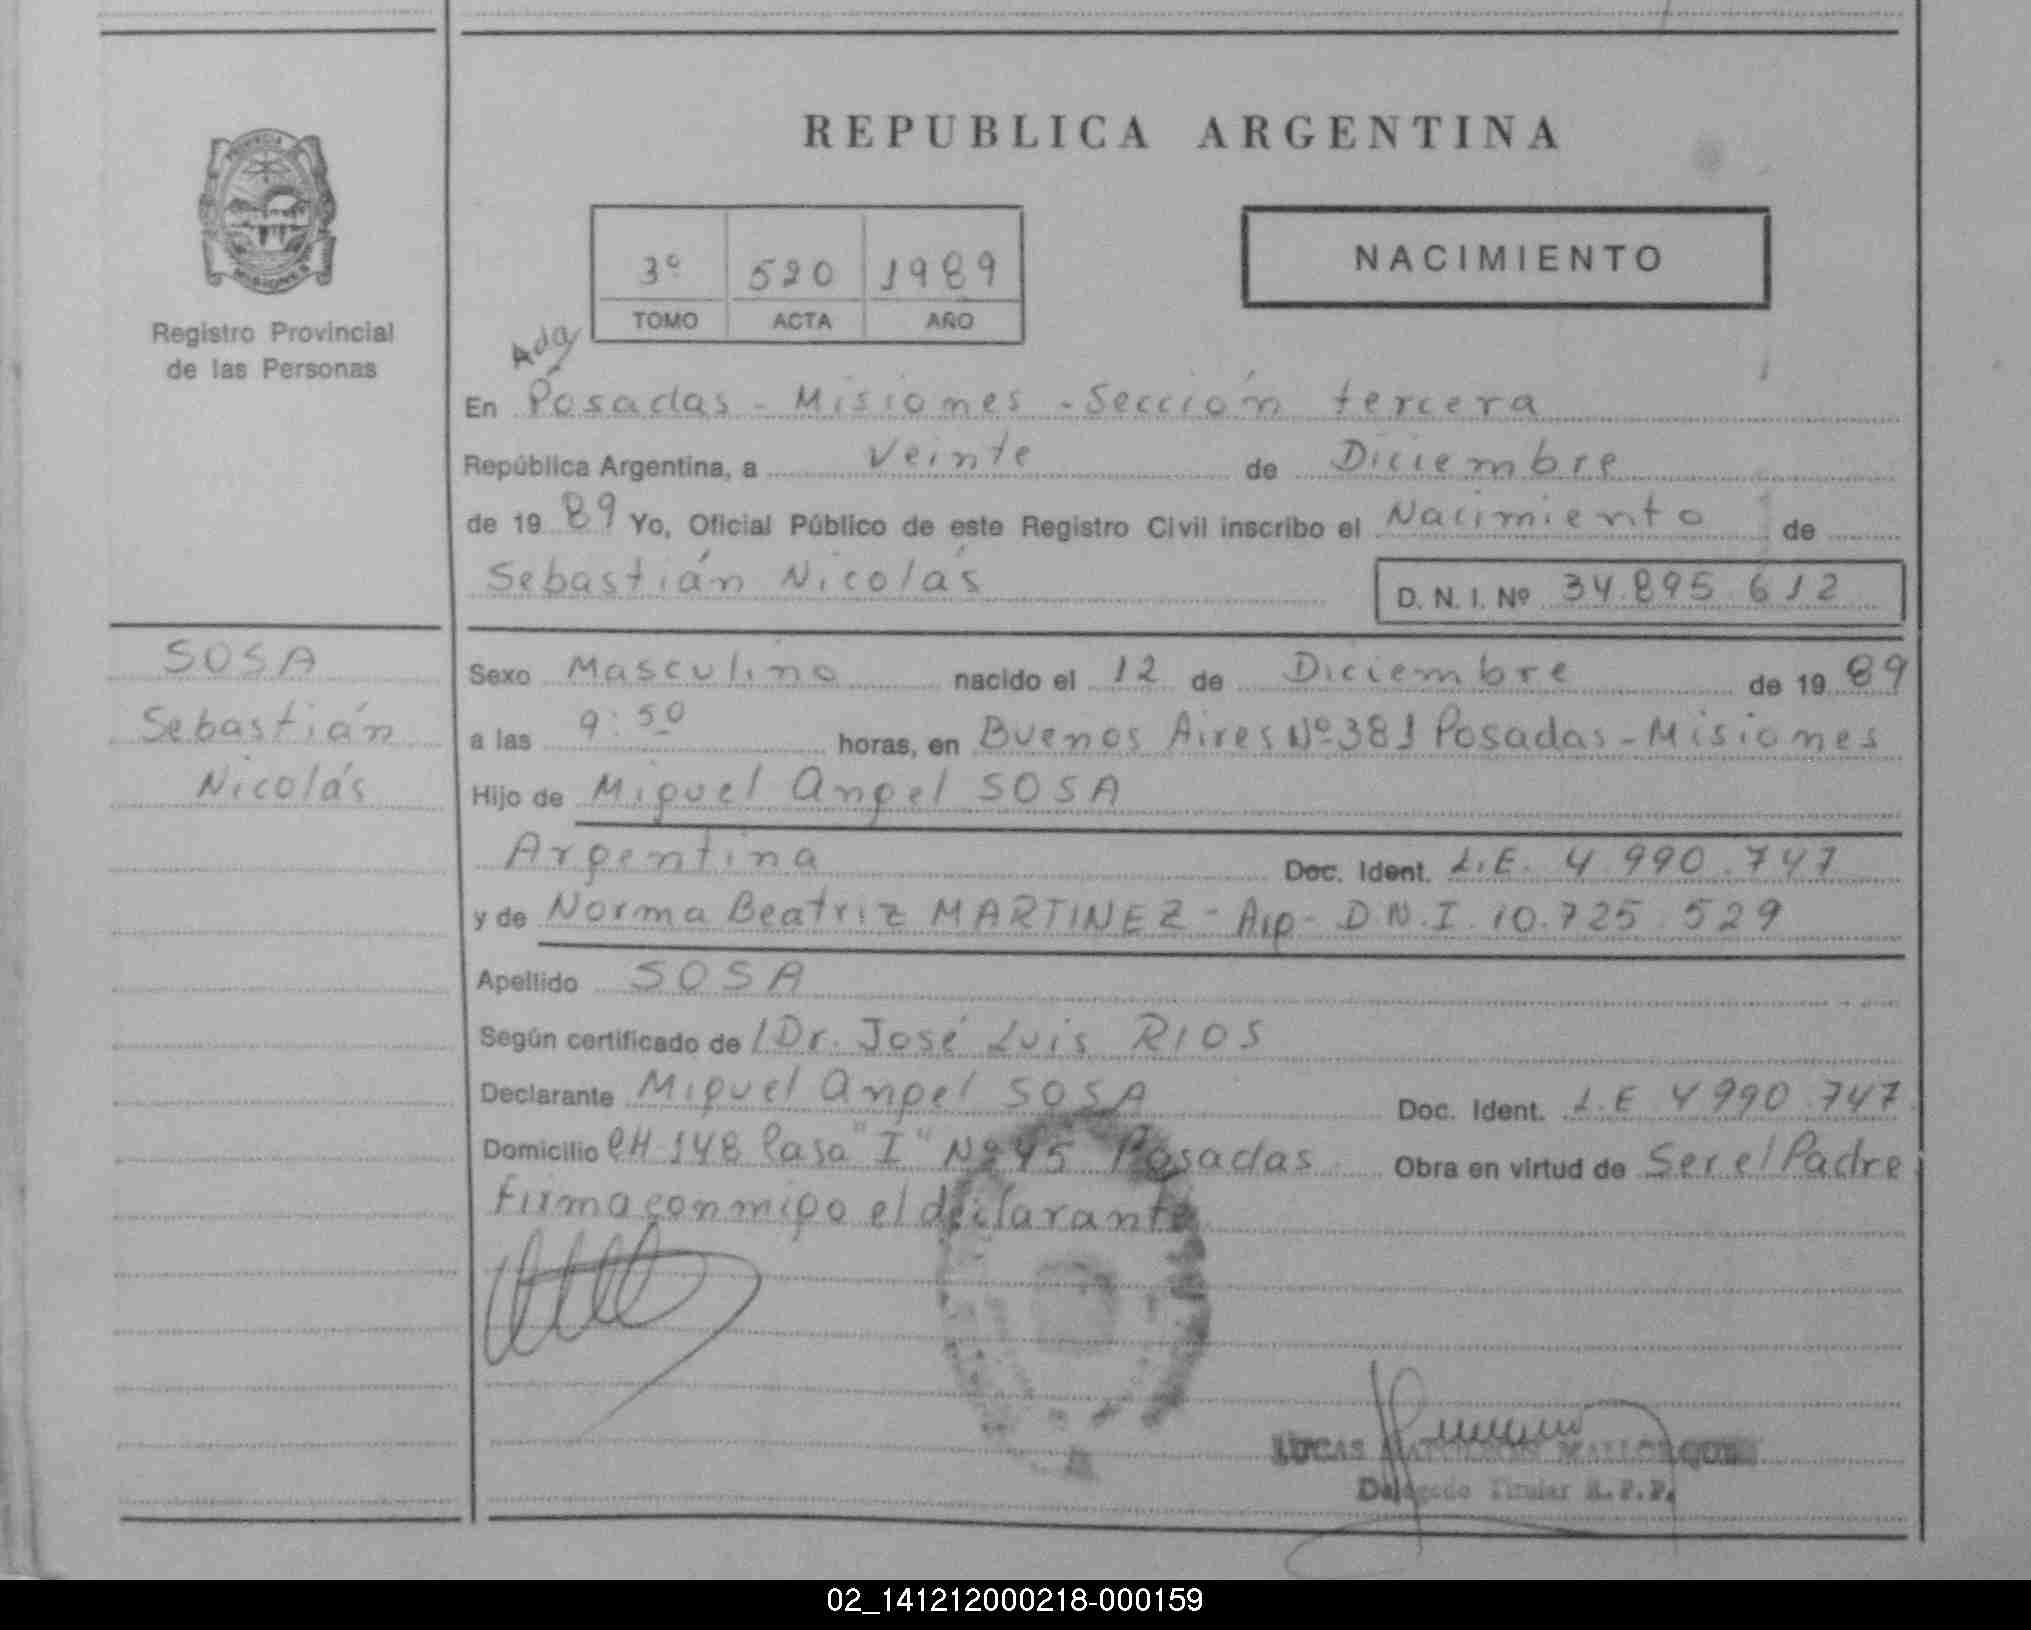 REPUBLICA ARGENTINA
PROVINCIA
MISIONES
Registro Provincial
de las Personas
3º 520 1989
TOMO ACTA AÑO
NACIMIENTO
Ada
En Posadas - Misiones - Sección tercera
República Argentina, a Veinte de Diciembre
de 19 89 Yo, Oficial Público de este Registro Civil inscribo el Nacimiento de
Sebastián Nicolás D. N. I. Nº 34.895.612
SOSA
Sebastián
Nicolás
Sexo Masculino nacido el 12 de Diciembre de 19 89
a las 9:50 horas, en Buenos Aires Nº 381 Posadas - Misiones
Hijo de Miguel Angel SOSA
Argentina Doc. Ident. L.E. 4.990.747
y de Norma Beatriz MARTINEZ - Arg - D.N.I. 10.725.529
Apellido SOSA
Según certificado de Dr. José Luis RIOS
Declarante Miguel Angel SOSA Doc. Ident. L.E 4990.747
Domicilio CH-148 Casa "I" Nº 45 Posadas Obra en virtud de Ser el Padre
firma conmigo el declarante
LUCAS
Delegado Titular R.P.P.
02_141212000218-000159